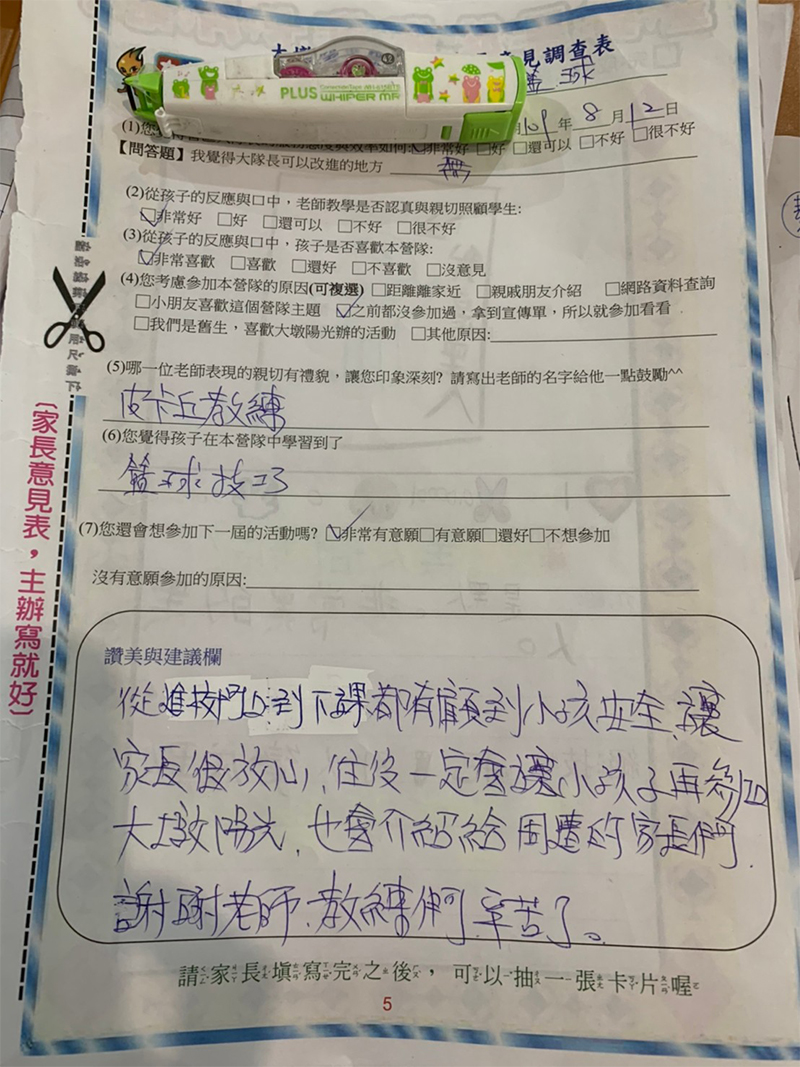 見調查表
PLUS WHIPER MR
月109年8月12日
非常好 □好 □還可以 □不好 □很不好
【問答題】我覺得大隊長可以改進的地方 無
(2)從孩子的反應與口中，老師教學是否認真與親切照顧學生:
☑非常好 □好 □還可以 □不好 □很不好
(3)從孩子的反應與口中，孩子是否喜歡本營隊:
☑非常喜歡 □喜歡 □還好 □不喜歡 □沒意見
(4)您考慮參加本營隊的原因(可複選)□距離離家近 □親戚朋友介紹 □網路資料查詢
□小朋友喜歡這個營隊主題 ☑之前都沒參加過，拿到宣傳單，所以就參加看看
□我們是舊生，喜歡大墩陽光辦的活動 □其他原因:
(5)哪一位老師表現的親切有禮貌，讓您印象深刻? 請寫出老師的名字給他一點鼓勵^^
皮卡丘教練
(6)您覺得孩子在本營隊中學習到了
籃球技巧
(7)您還會想參加下一屆的活動嗎? ☑非常有意願□有意願□還好□不想參加
沒有意願參加的原因:
讚美與建議欄
從進校門口到下課都有顧到小孩安全、讓
家長很放心，往後一定會讓小孩子再參加
大墩陽光，也會介紹給周遭的家長們，
謝謝老師、教練們辛苦了。
請家長填寫完之後，可以抽一張卡片喔
5
〔家長意見表，主辦寫就好〕